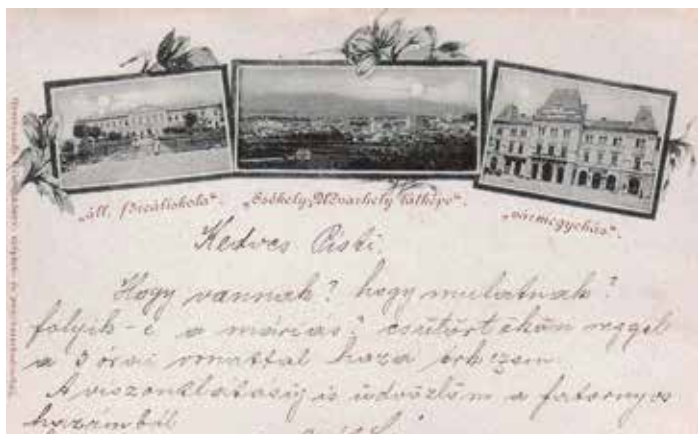 „áll. főreáliskola“.
„Székely-Udvarhely látképe“.
„vármegyeház“.
Kedves Piski.
Hogy vannak? hogy mulatnak?
folyik-e a márias? csütörtökön reggel
a 3 órai vonattal haza érkezem.
A viszontlátásig is üdvözlöm a fatornyos
hazámból